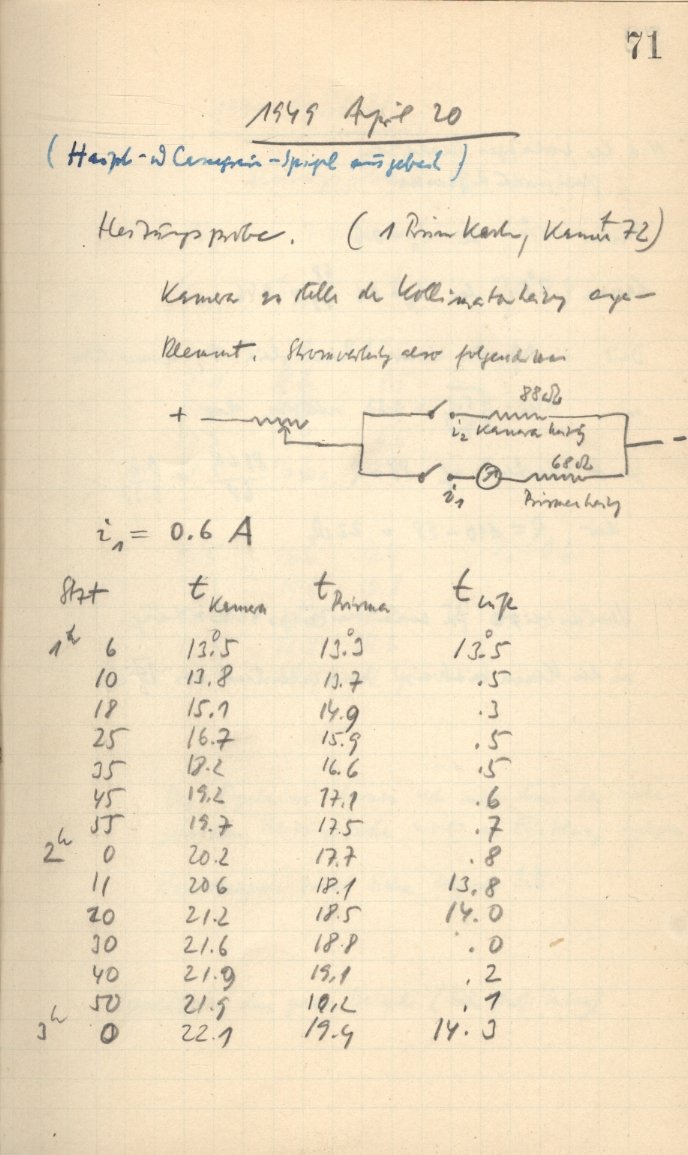 71
1949 April 20
(Haupt- u Cassegrain-Spiegel ausgebaut)
Heizungsprobe. (1 Prisma, Kamera 72)
Kamera an Stelle der Kollimatorheizung
Element. Stromverteilung also folgende
+ 88Ω -
i₂ Kameraheizg
68Ω
i₁ Prismenheizg
i₁ = 0.6 A
t Kamera t Prisma t Luft
1h 6 13°.5 13°.3 13°.5
10 13.8 13.7 .5
18 15.1 14.9 .3
25 16.7 15.9 .5
35 18.2 16.6 .5
45 19.2 17.1 .6
55 19.7 17.5 .7
2h 0 20.2 17.7 .8
11 20 6 18.1 13.8
20 21.2 18.5 14.0
30 21.6 18.8 .0
40 21.9 19.1 .2
50 21.9 19.2 .1
3h 0 22.1 19.4 14.3